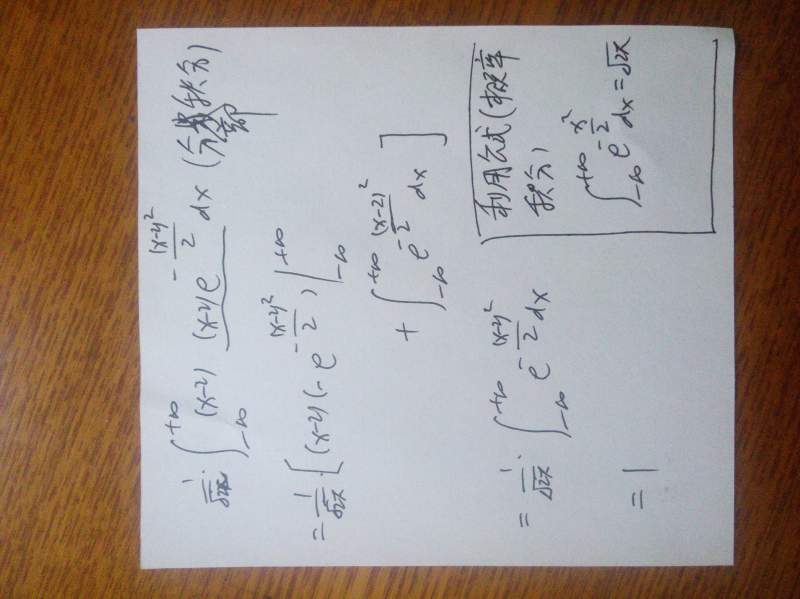 1/√2π · ∫_{-∞}^{+∞} (x-2) (x-2) e^{-(x-2)²/2} dx (分部积分)
= 1/√2π · [ (x-2)(-e^{-(x-2)²/2}) |_{-∞}^{+∞}
+ ∫_{-∞}^{+∞} e^{-(x-2)²/2} dx ]
= 1/√2π · ∫_{-∞}^{+∞} e^{-(x-2)²/2} dx
= 1
利用公式(概率
积分)
∫_{-∞}^{+∞} e^{-x²/2} dx = √2π